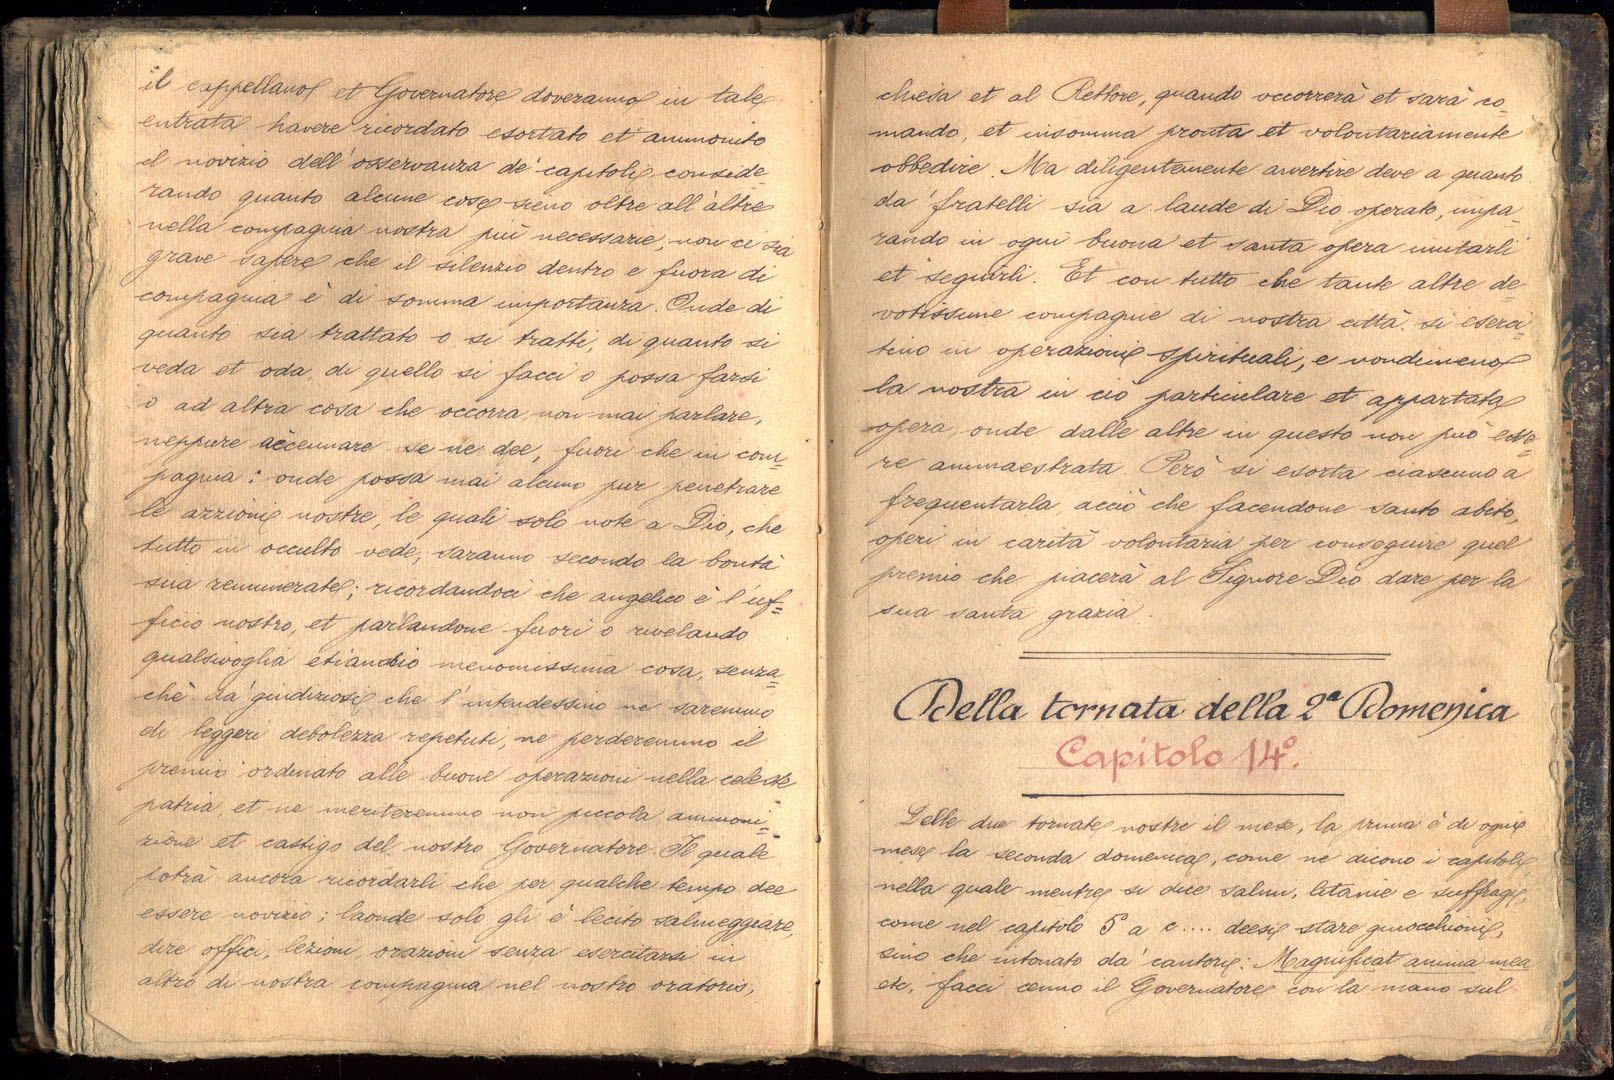 il cappellano et Governatore doveranno in tale
entrata havere ricordato esortato et ammonito
il novizio dell'osservanza de' capitoli conside=
rando quanto alcune cose sieno oltre all'altre
nella compagnia nostra più necessarie; non ci sia
grave sapere che il silenzio dentro e fuora di
compagnia è di somma importanza. Onde di
quanto sia trattato o si tratti, di quanto si
veda et oda, di quello si facci o possa farsi
o ad altra cosa che occorra non mai parlare,
neppure accennare se ne dee, fuori che in com=
pagnia: onde possa mai alcuno pur penetrare
le azzioni nostre, le quali solo note a Dio, che
tutto in occulto vede, saranno secondo la bontà
sua remunerate; ricordandoci che angelico è l'uf=
ficio nostro, et parlandone fuori o rivelando
qualsivoglia etiandio menomissima cosa, senza=
chè da' giudiziosi che l'intendessino ne saremmo
di leggeri debolezza reputati, ne perderemmo il
premio ordinato alle buone operazioni nella celeste
patria, et ne meriteremmo non piccola ammoni=
zione et castigo del nostro Governatore. Il quale
potrà ancora ricordarli che per qualche tempo dee
essere novizio; laonde solo gli è lecito salmeggiare,
dire offici, lezioni, orazioni senza esercitarsi in
altro di nostra compagnia nel nostro oratorio,
chiesa et al Rettore, quando occorrerà et sarà co=
mando, et insomma pronta et volontariamente
obbedire. Ma diligentemente avvertire deve a quanto
da' fratelli sia a laude di Dio operato, impa=
rando in ogni buona et santa opera imitarli
et seguirli. Et con tutto che tante altre de=
votissime compagnie di nostra città si eserci=
tino in operazioni spirituali, e nondimeno
la nostra in ciò particulare et appartata
opera, onde dalle altre in questo non può esse=
re ammaestrata. Però si esorta ciascuno a
frequentarla, acciò che facendone santo abito,
operi in carità volontaria per conseguire quel
premio che piacerà al Signore Dio dare per la
sua santa grazia.
Della tornata della 2ª Domenica
Capitolo 14º.
Delle due tornate nostre il mese, la prima è di ogni
mese la seconda domenica, come ne dicono i capitoli,
nella quale mentre si dice salmi, litanie e suffragi,
come nel capitolo 5º a c.... deesi stare ginocchioni,
sino che intonato da' cantori: Magnificat anima mea
etc, facci cenno il Governatore con la mano sul